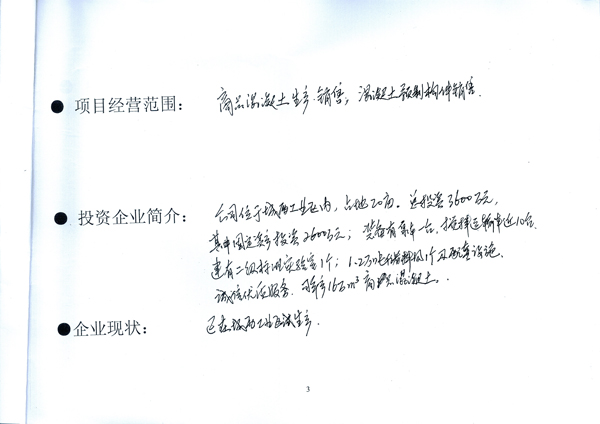 ● 项目经营范围: 商品混凝土生产、销售; 混凝土预制构件销售.
● 投资企业简介: 公司位于城西工业区内, 占地20亩. 总投资3600万元,
其中固定资产投资2600万元; 装备有泵车一台, 搅拌运输车近10台.
建有二级标准实验室1个; 1个及配套设施.
诚信优质服务. 年产16万m³商品混凝土.
● 企业现状: 已在城西工业区试生产.
3